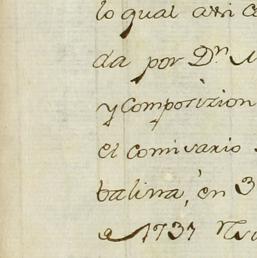 lo qual assi
da por Dn
y Composizion
el comisario
talina, en 3
a 1737